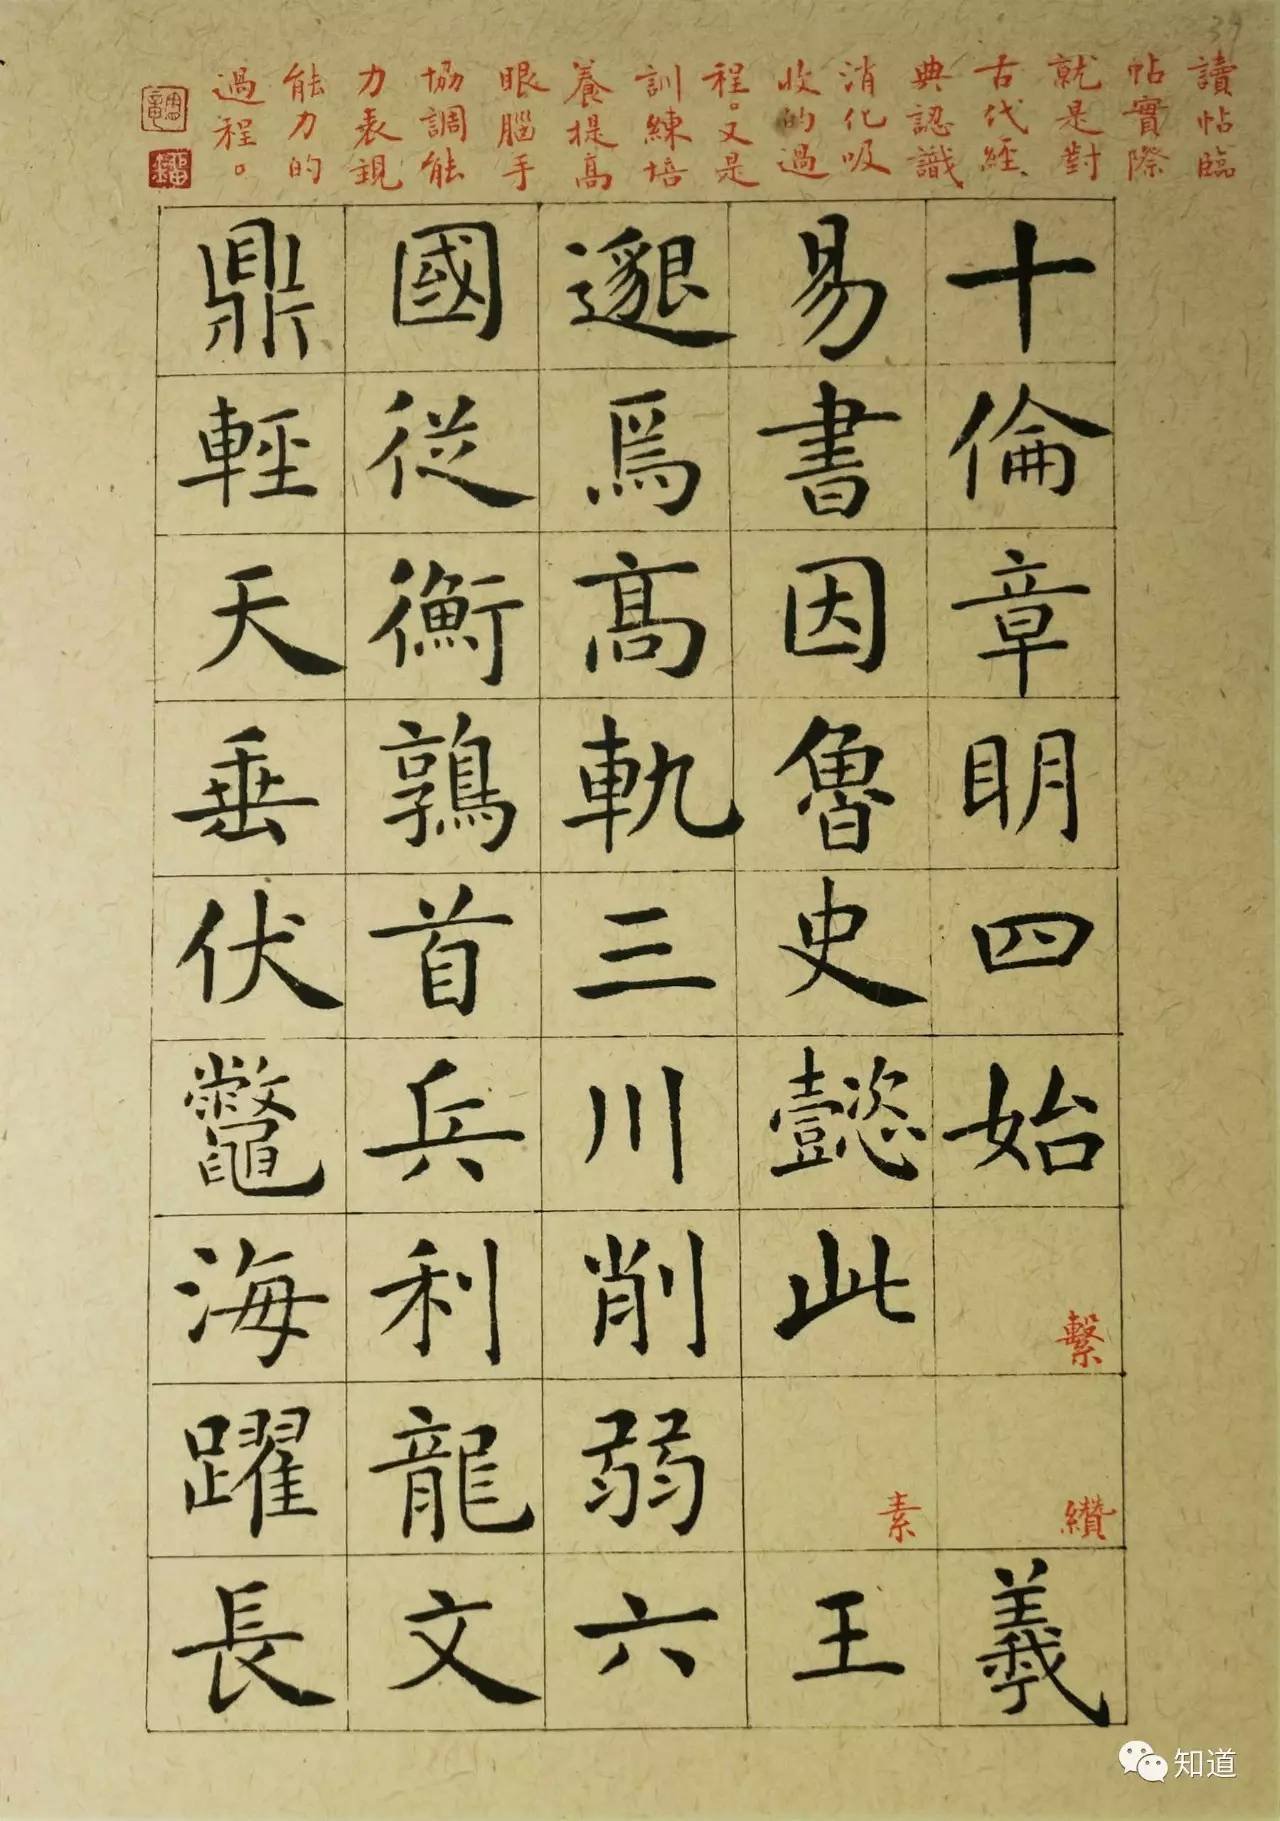 讀帖臨
帖實際
就是對
古代經
典認識
消化吸
收的過
程。又是
訓練培
養提高
眼腦手
協調能
力表現
能力的
過程。
十倫章明四始繫纘羲
易書因魯史懿此素王
邈焉高軌三川削弱六
國從衡鶉首兵利龍文
鼎輕天垂伏鼈海躍長
知道